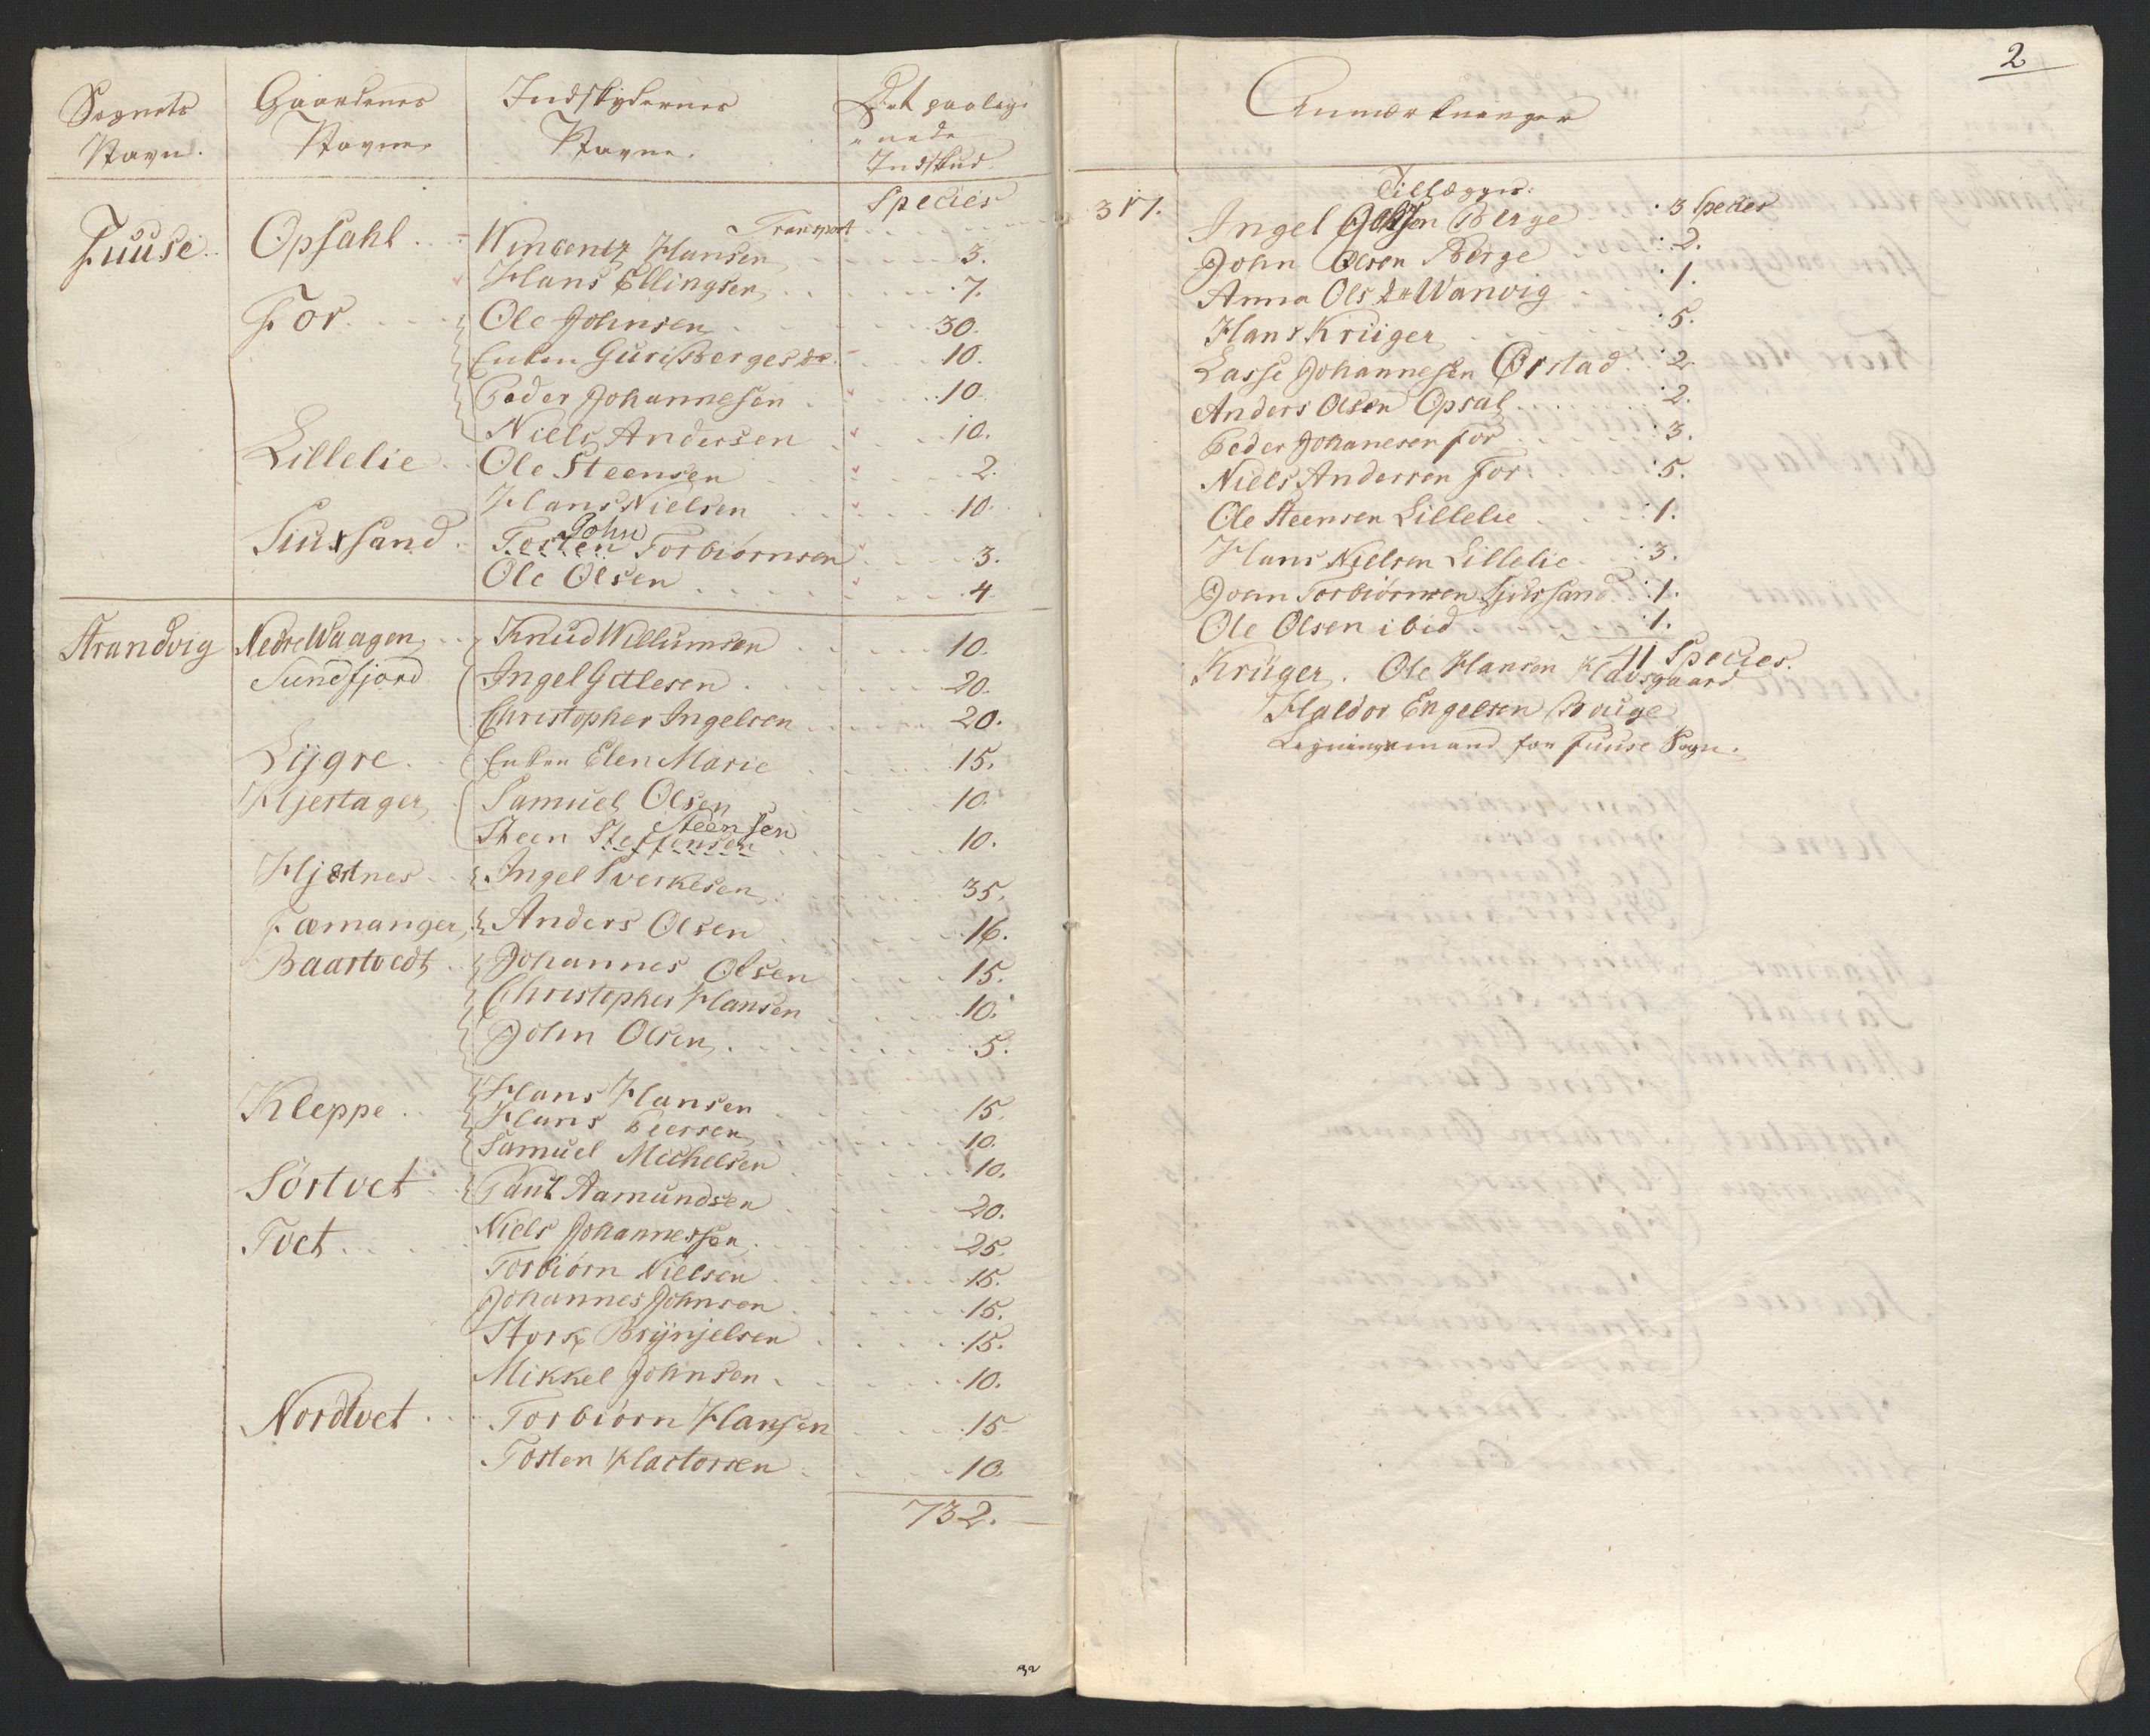 Sognets Gaardenes Indskydernes Det paalag-
Navn. Navne. Navne. nede
Indskud.
Species
Transport . . . 317.
Fuuse . . Opsahl . . . Wincentz Hansen . . . 3.
Hans Ellingsen . . . 7.
For . . . Ole Johnsen . . . 30.
Enken Guri Bergesdr . . 10.
Peder Johannesen . . . 10.
Niels Andersen . . . 10.
Lillelie . . Ole Steensen . . . 2.
Hans Nielsen . . . 10.
John
Siursand . . Tosten Torbiørnsen . . . 3.
Ole Olsen . . . 4
Strandvig Nedre Waagen . . Knud Willumsen . . . 10.
Sundfjord Ingel Gitlesen . . . 20.
Christopher Ingelsen . . . 20.
Lygre . . Enken Elen Marie . . . 15.
Hjertager Samuel Olsen . . . 10.
Steensen
Steen Steffensen . . . 10.
Hjertnes . . Ingel Sverkesen . . . 35.
Fæmanger Anders Olsen . . . 16.
Baartvedt . . Johannes Olsen . . . 15.
Christopher Hansen . . . 10.
John Olsen . . . 5.
Kleppe . . Hans Hansen . . . 15.
Hans Peersen . . . 10.
Samuel Michelsen . . . 10.
Sörtvet . . Paul Aamundsen . . . 20.
Tvet . . . Niels Johannessen . . . 25.
Torbiørn Nielsen . . . 15.
Johannes Johnsen . . . 15.
Stork Brynjelsen . . . 15.
Mikkel Johnsen . . . 10.
Nordtvet . . . Torbiørn Hansen . . . 15
Tosten Hartorsen . . . 10.
732.
2
Anmærkninger
Tillægger:
Ingel Olsen Berge . . : 3 Species
John Olsen Berge : 2.
Anna Olsdr Wanvig . . : 1.
Hans Krüger . . . : 5.
Lasse Johannesen Ørstad . : 2.
Anders Olsen Opsal . . . : 2.
Peder Johanesen For . . . : 3.
Niels Andersen For . . . : 5.
Ole Steensen Lillelie . . . : 1.
Hans Nielsen Lillelie . . : 3.
John Torbiørnsen Siursand . : 1.
Ole Olsen ibid . . . : 1.
41 Species.
Krüger. Ole Hansen Havsgaard
Haldor Engelsen Bauge
Ligningsmænd for Fuuse Sogn.